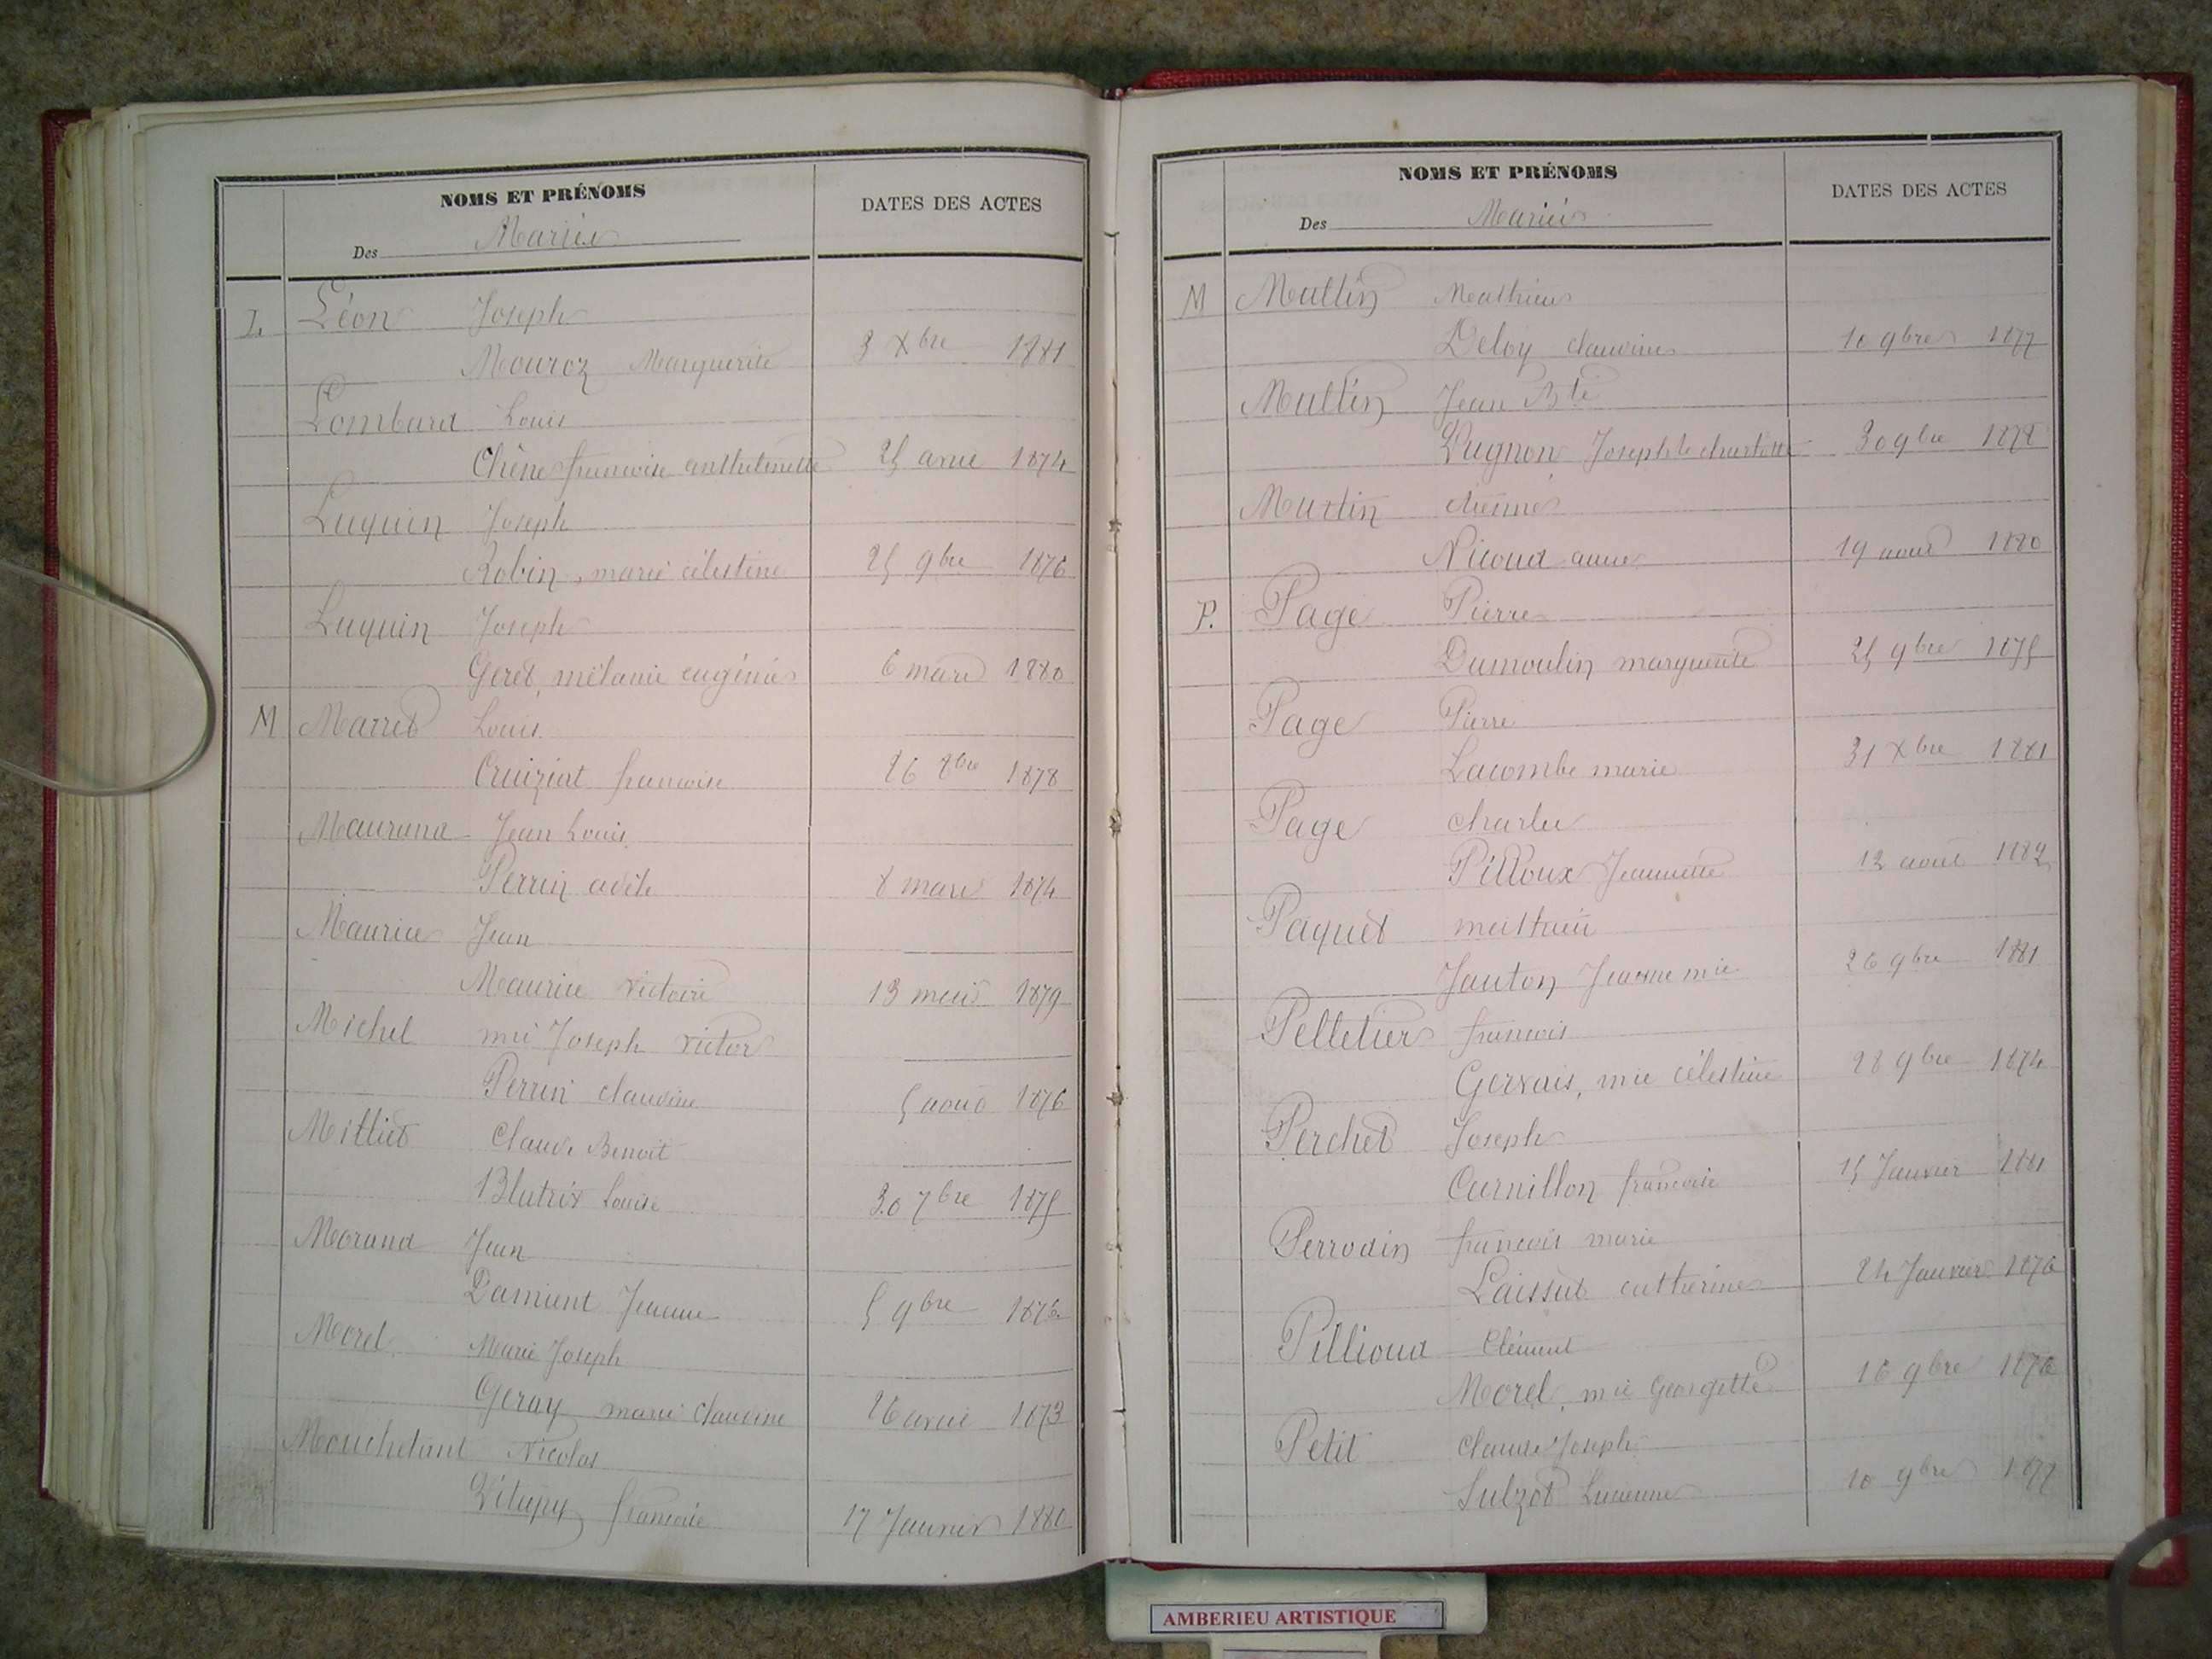 NOMS ET PRÉNOMS
DATES DES ACTES
Des Mariés
L. Léon Joseph
Mouroz Marguerite 3 Xbre 1881
Lombard Louis
Chêne francoise anthelmette 25 avril 1874
Luquin Joseph
Robin, marie célestine 25 9bre 1876
Luquin Joseph
Geret, mélanie eugénie 6 mars 1880
M Marret Louis
Cruiziat francoise 26 8bre 1878
Maurand Jean Louis
Perrin adèle 8 mars 1874
Maurice Jean
Maurice victoire 13 1879
Michel mie Joseph victor
Perrin claudine 5 aout 1876
Milliet Claude Benoit
Blatrix Louise 30 7bre 1875
Morand Jean
Damient Jeanne 5 9bre
Morel Marie Joseph
Geray marie claudine 26 avril 1873
Mouchetant Nicolas
francoise 17 Janvier 1880
NOMS ET PRÉNOMS
DATES DES ACTES
Des Mariés
M Mathieu
Deloy claudine 10 9bre 1877
Jean Bte
Dugnon Josephte charlotte 30 9bre 1878
Martin étienne
Nicoud anne 19 aout 1880
P. Page Pierre
Dumoulin marguerite 25 9bre 1875
Page Pierre
Lacombe marie 31 Xbre 1881
Page charles
Pilloux Jeannette 12 aout 1882
Paquet mathieu
Janton Jeanne mie 26 9bre 1881
Pelletier francois
Gervais, mie célestine 28 9bre 1874
Perchet Joseph
Curnillon francoise 15 Janvier 1881
Perrodin francois marie
Laissut catherine 24 Janvier 1876
Pillioud Clément
Morel, mie Georgette 16 9bre
Petit Claude Joseph
Sulzot Lucienne 10 9bre 1877
AMBERIEU ARTISTIQUE